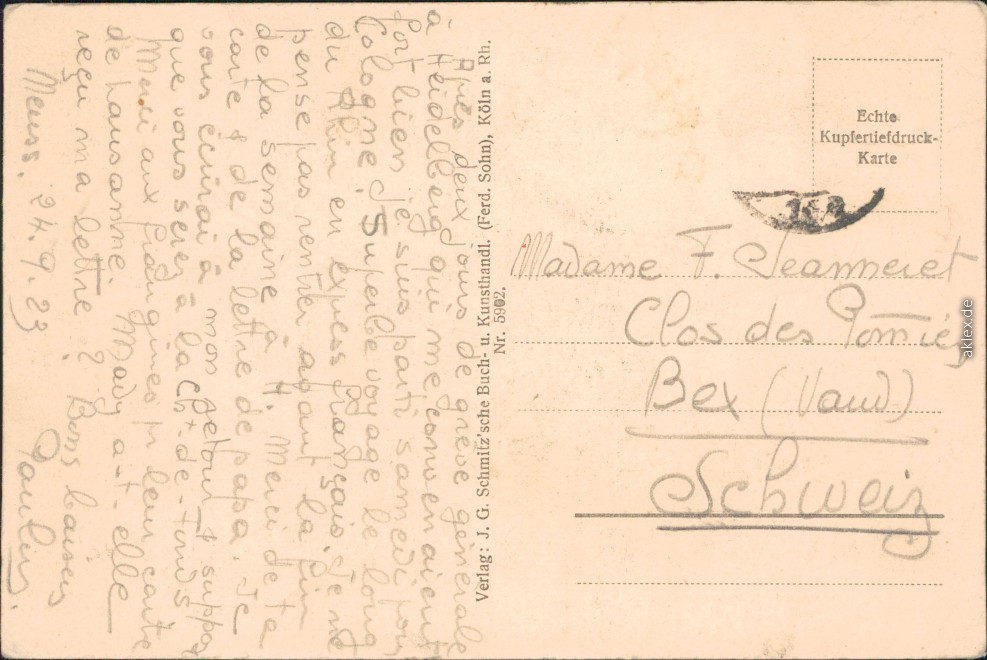 Après deux jours de grève générale
à Heidelberg qui me convenaient
fort bien je suis parti samedi pour
Cologne. Superbe voyage le long
du Rhin en express français. Je ne
pense pas rentrer avant la fin
de la semaine à H. Merci de ta
carte & de la lettre de papa. Je
vous écrirai à mon retour & suppose
que vous serez à la Ch-de-Fonds
Merci aux
de Lausanne. Mady a-t-elle
reçu ma lettre? Bons baisers
24.9.23
Verlag: J. G. Schmitz'sche Buch- u. Kunsthandl. (Ferd. Sohn), Köln a. Rh.
Nr. 5902.
Echte
Kupfertiefdruck-
Karte
Madame F. Jeanneret
Clos des
Bex (Vaud)
Schweiz
aklex.de